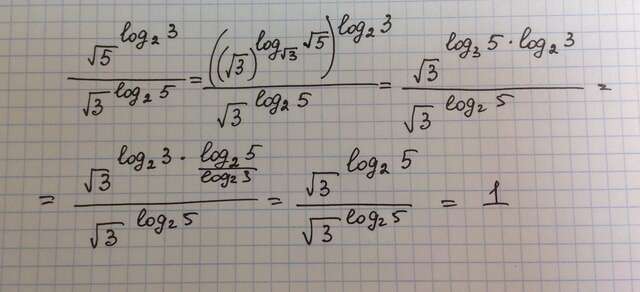 √5^(log₂ 3) / √3^(log₂ 5) = ((√3)^(log_√3 √5))^(log₂ 3) / √3^(log₂ 5) = √3^(log₃ 5 · log₂ 3) / √3^(log₂ 5) =
= √3^(log₂ 3 · log₂ 5 / log₂ 3) / √3^(log₂ 5) = √3^(log₂ 5) / √3^(log₂ 5) = 1